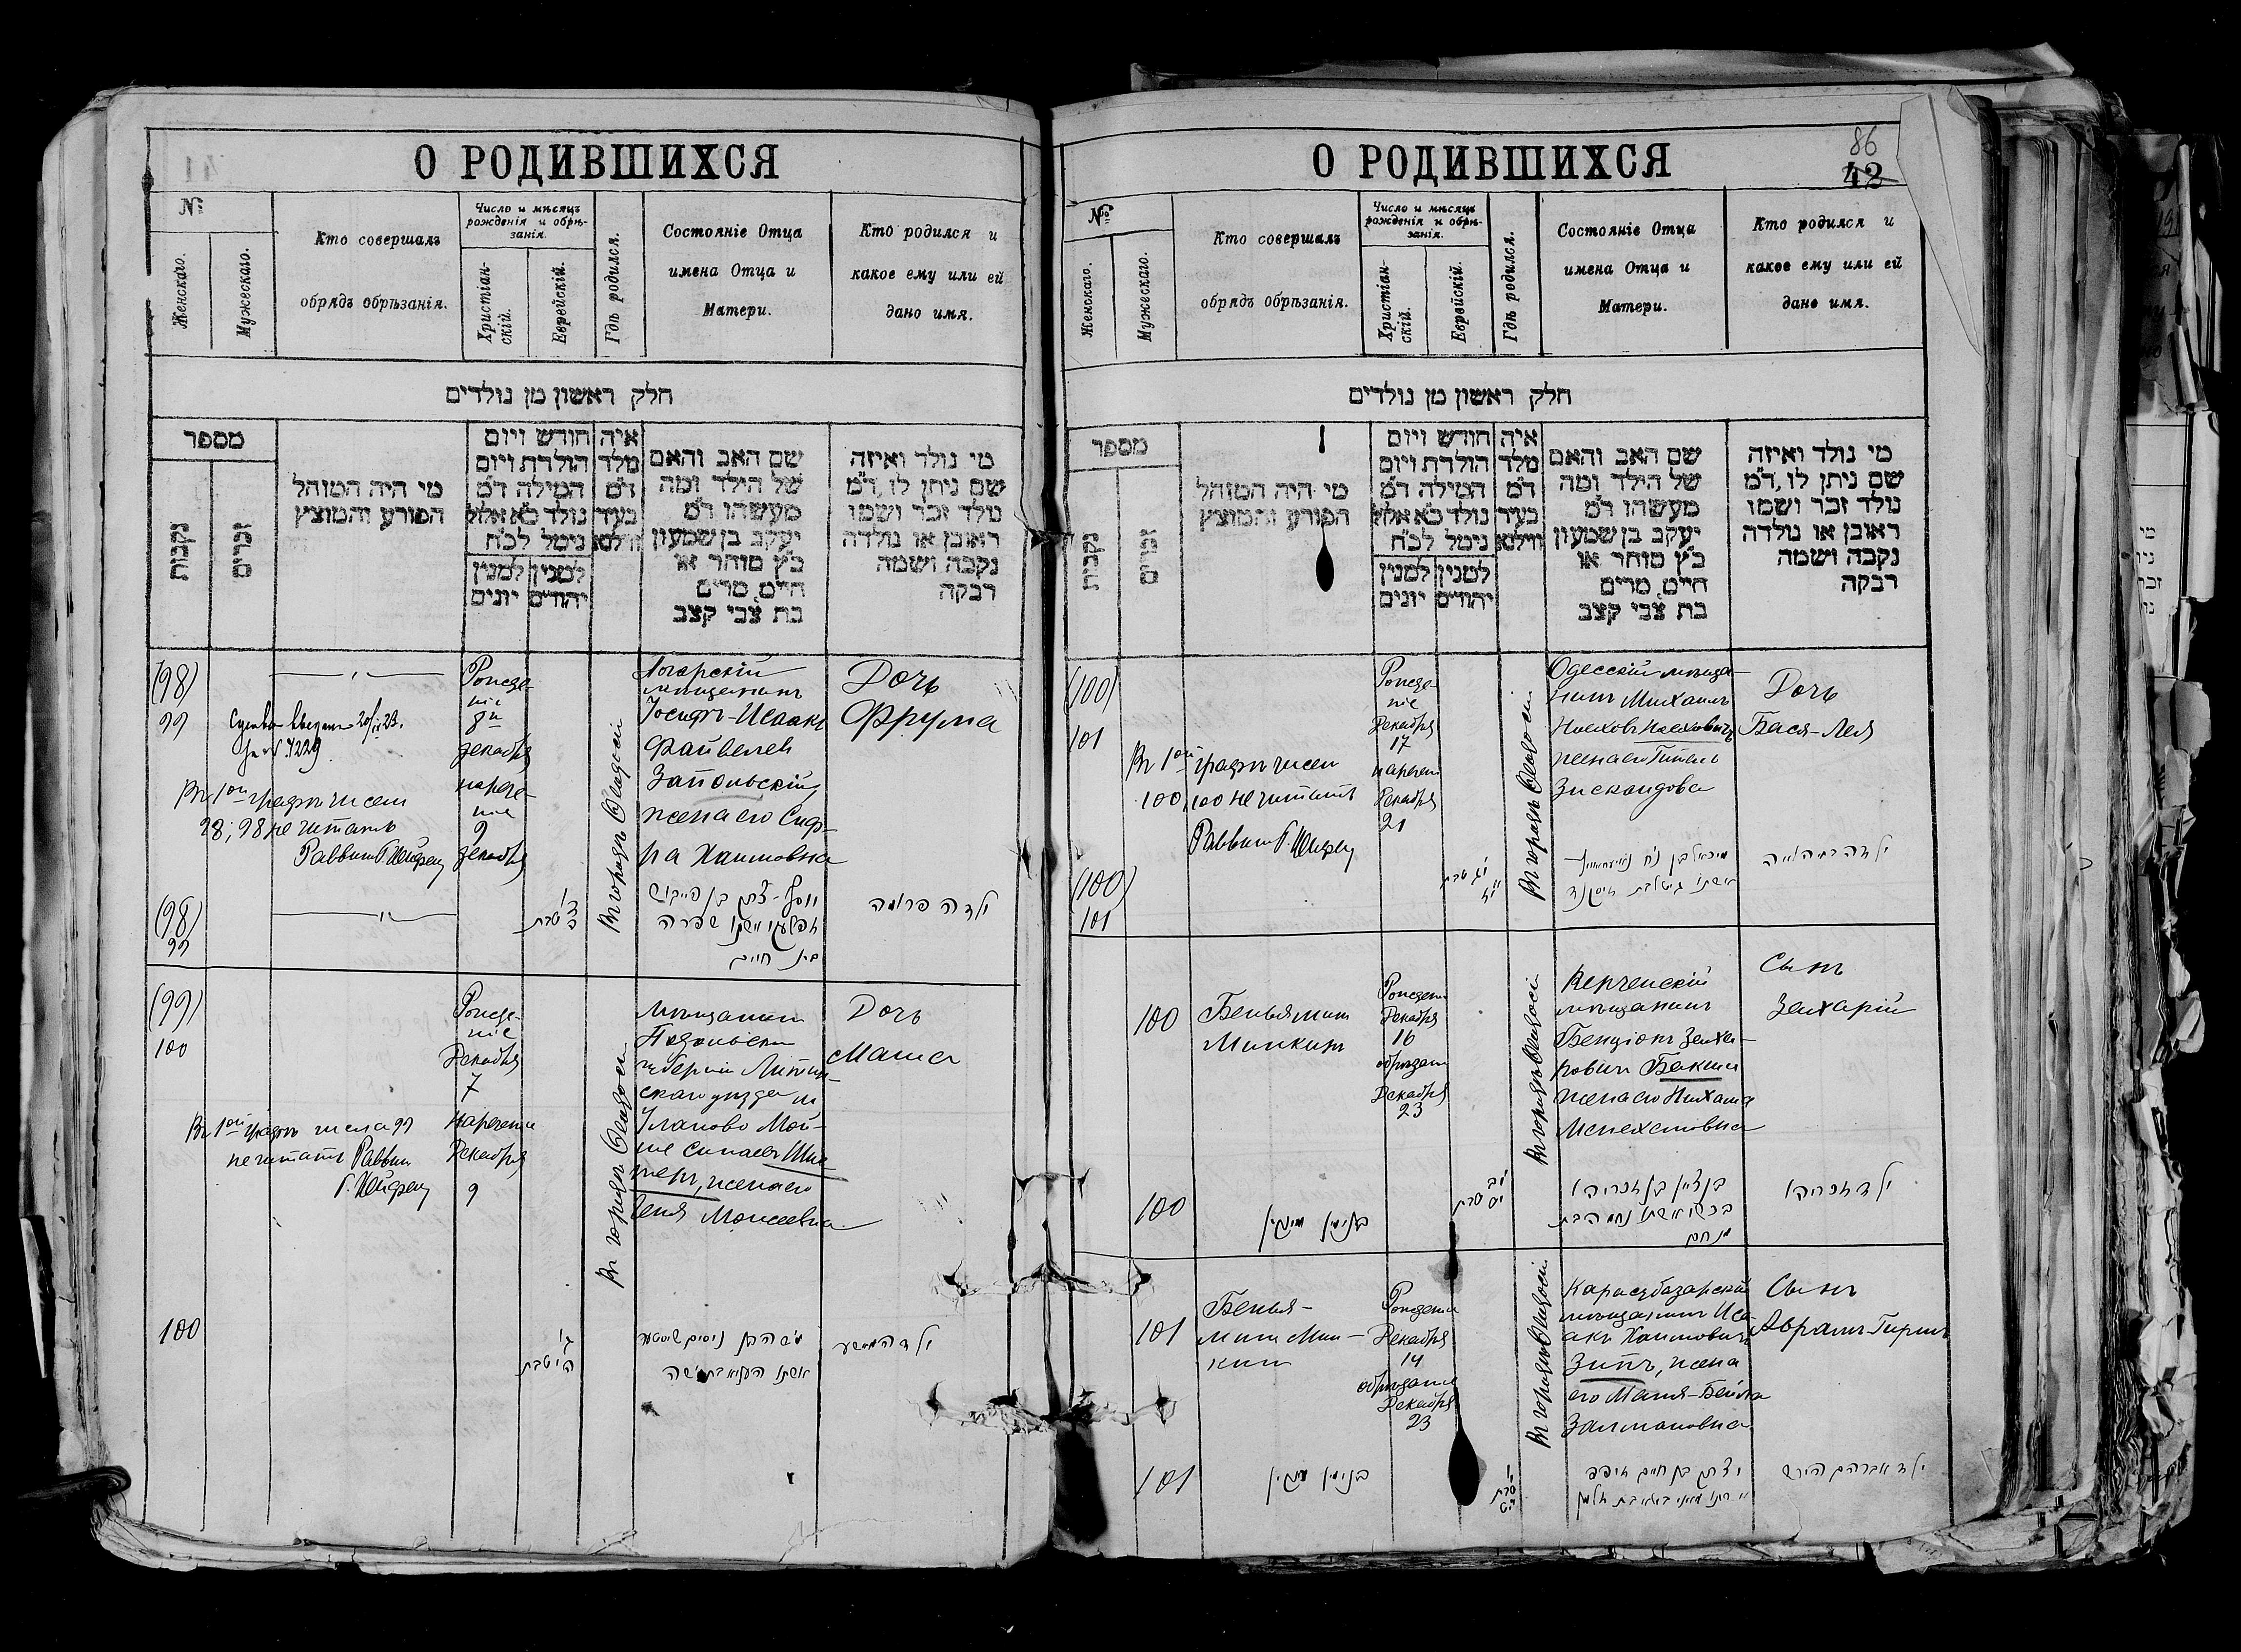 О РОДИВШИХСЯ
№
Женскаго.
Мужескаго.
Кто совершалъ
обрядъ обрѣзанія.
Число и мѣсяцъ
рожденія и обрѣ-
занія.
Христіан-
скій.
Еврейскій.
Гдѣ родился.
Состояніе Отца
имена Отца и
Матери.
Кто родился и
какое ему или ей
дано имя.
חלק ראשון מן נולדים
מספר
נקבות
זכרים
מי היה המוהל
הפורע והמוצץ
חודש ויום
הולדת ויום
המילה ד"מ
נולד כ"א אלול
נימל לכ"ח
למנין למנין
יהודים יונים
איה
מלד
ד"מ
בעיר
ווילנא
שם האב והאם
של הילד ומה
מעשהו ד"מ
יעקב בן שמעון
כ"ץ סוחר או
חיים, מרים
בת צבי קצב
מי נולד ואיזה
שם ניתן לו, ד"מ
נולד זכר ושמו
ראובן או נולדה
נקבה ושמה
רבקה
(98)
99
Въ 1ой графѣ числа
98, 98 не читать
Раввинъ
Рожде-
ніе
8го
декабря
нарече-
ніе
9
декабря
Въ городѣ Ѳеодосіи
мѣщанинъ
Іосифъ-Исаакъ
Файвелев
Запольскій,
жена его Сиф-
ра Хаимовна
Дочь
Фрума
(98)
99
ילדה פרומה
(99)
100
Въ 1ой графѣ числа 99
не читать Раввинъ
Рожде-
ніе
Декабря
7
Наречении
Декабря
9
Въ городѣ Ѳеодосіи
мѣщанинъ
Подольской
губерніи Литин-
скаго уѣзда м
Уланово Мой-
ше
жена его
Моисеевна
Дочь
Маша
100
О РОДИВШИХСЯ
86
42
№
Женскаго.
Мужескаго.
Кто совершалъ
обрядъ обрѣзанія.
Число и мѣсяцъ
рожденія и обрѣ-
занія.
Христіан-
скій.
Еврейскій.
Гдѣ родился.
Состояніе Отца
имена Отца и
Матери.
Кто родился и
какое ему или ей
дано имя.
חלק ראשון מן נולדים
מספר
נקבות
זכרים
מי היה המוהל
הפורע והמוצץ
חודש ויום
הולדת ויום
המילה ד"מ
נולד כ"א אלול
נימל לכ"ח
למנין למנין
יהודים יונים
איה
מלד
ד"מ
בעיר
ווילנא
שם האב והאם
של הילד ומה
מעשהו ד"מ
יעקב בן שמעון
כ"ץ סוחר או
חיים, מרים
בת צבי קצב
מי נולד ואיזה
שם ניתן לו, ד"מ
נולד זכר ושמו
ראובן או נולדה
נקבה ושמה
רבקה
(100)
101
Въ 1ой графѣ числа
100, 100 не читать
Раввинъ
Рожде-
ніе
Декабря
17
наречен
Декабря
21
Въ городѣ Ѳеодосіи
Одесскій мѣща-
нинъ Михаилъ
жена его Гитель
Дочь
Бася-Лея
(100)
101
100
Беньяминъ
Минкинъ
Рожденіе
Декабря
16
обрѣзаніе
Декабря
23
Въ городѣ Ѳеодосіи
Керченскій
мѣщанинъ
Бенціонъ Заха-
ровичъ Бакши
жена его Нихама
Менехемовна
Сынъ
Захарій
100
בנימין מינקין
בן ציון בן זכריהו
בכשי אשתו נחמה בת
מנחם
ילד זכריהו
101
Бенья-
минъ Мин-
кинъ
Рожденіе
Декабря
14
обрѣзаніе
Декабря
23
Въ городѣ Ѳеодосіи
Карасубазарскій
мѣщанинъ Иса-
акъ Хаимовичъ
Зипъ, жена
его Маня-Бейла
Залмановна
Сынъ
Авраамъ-Гиршъ
101
בנימין מינקין
ילד אברהם הירש